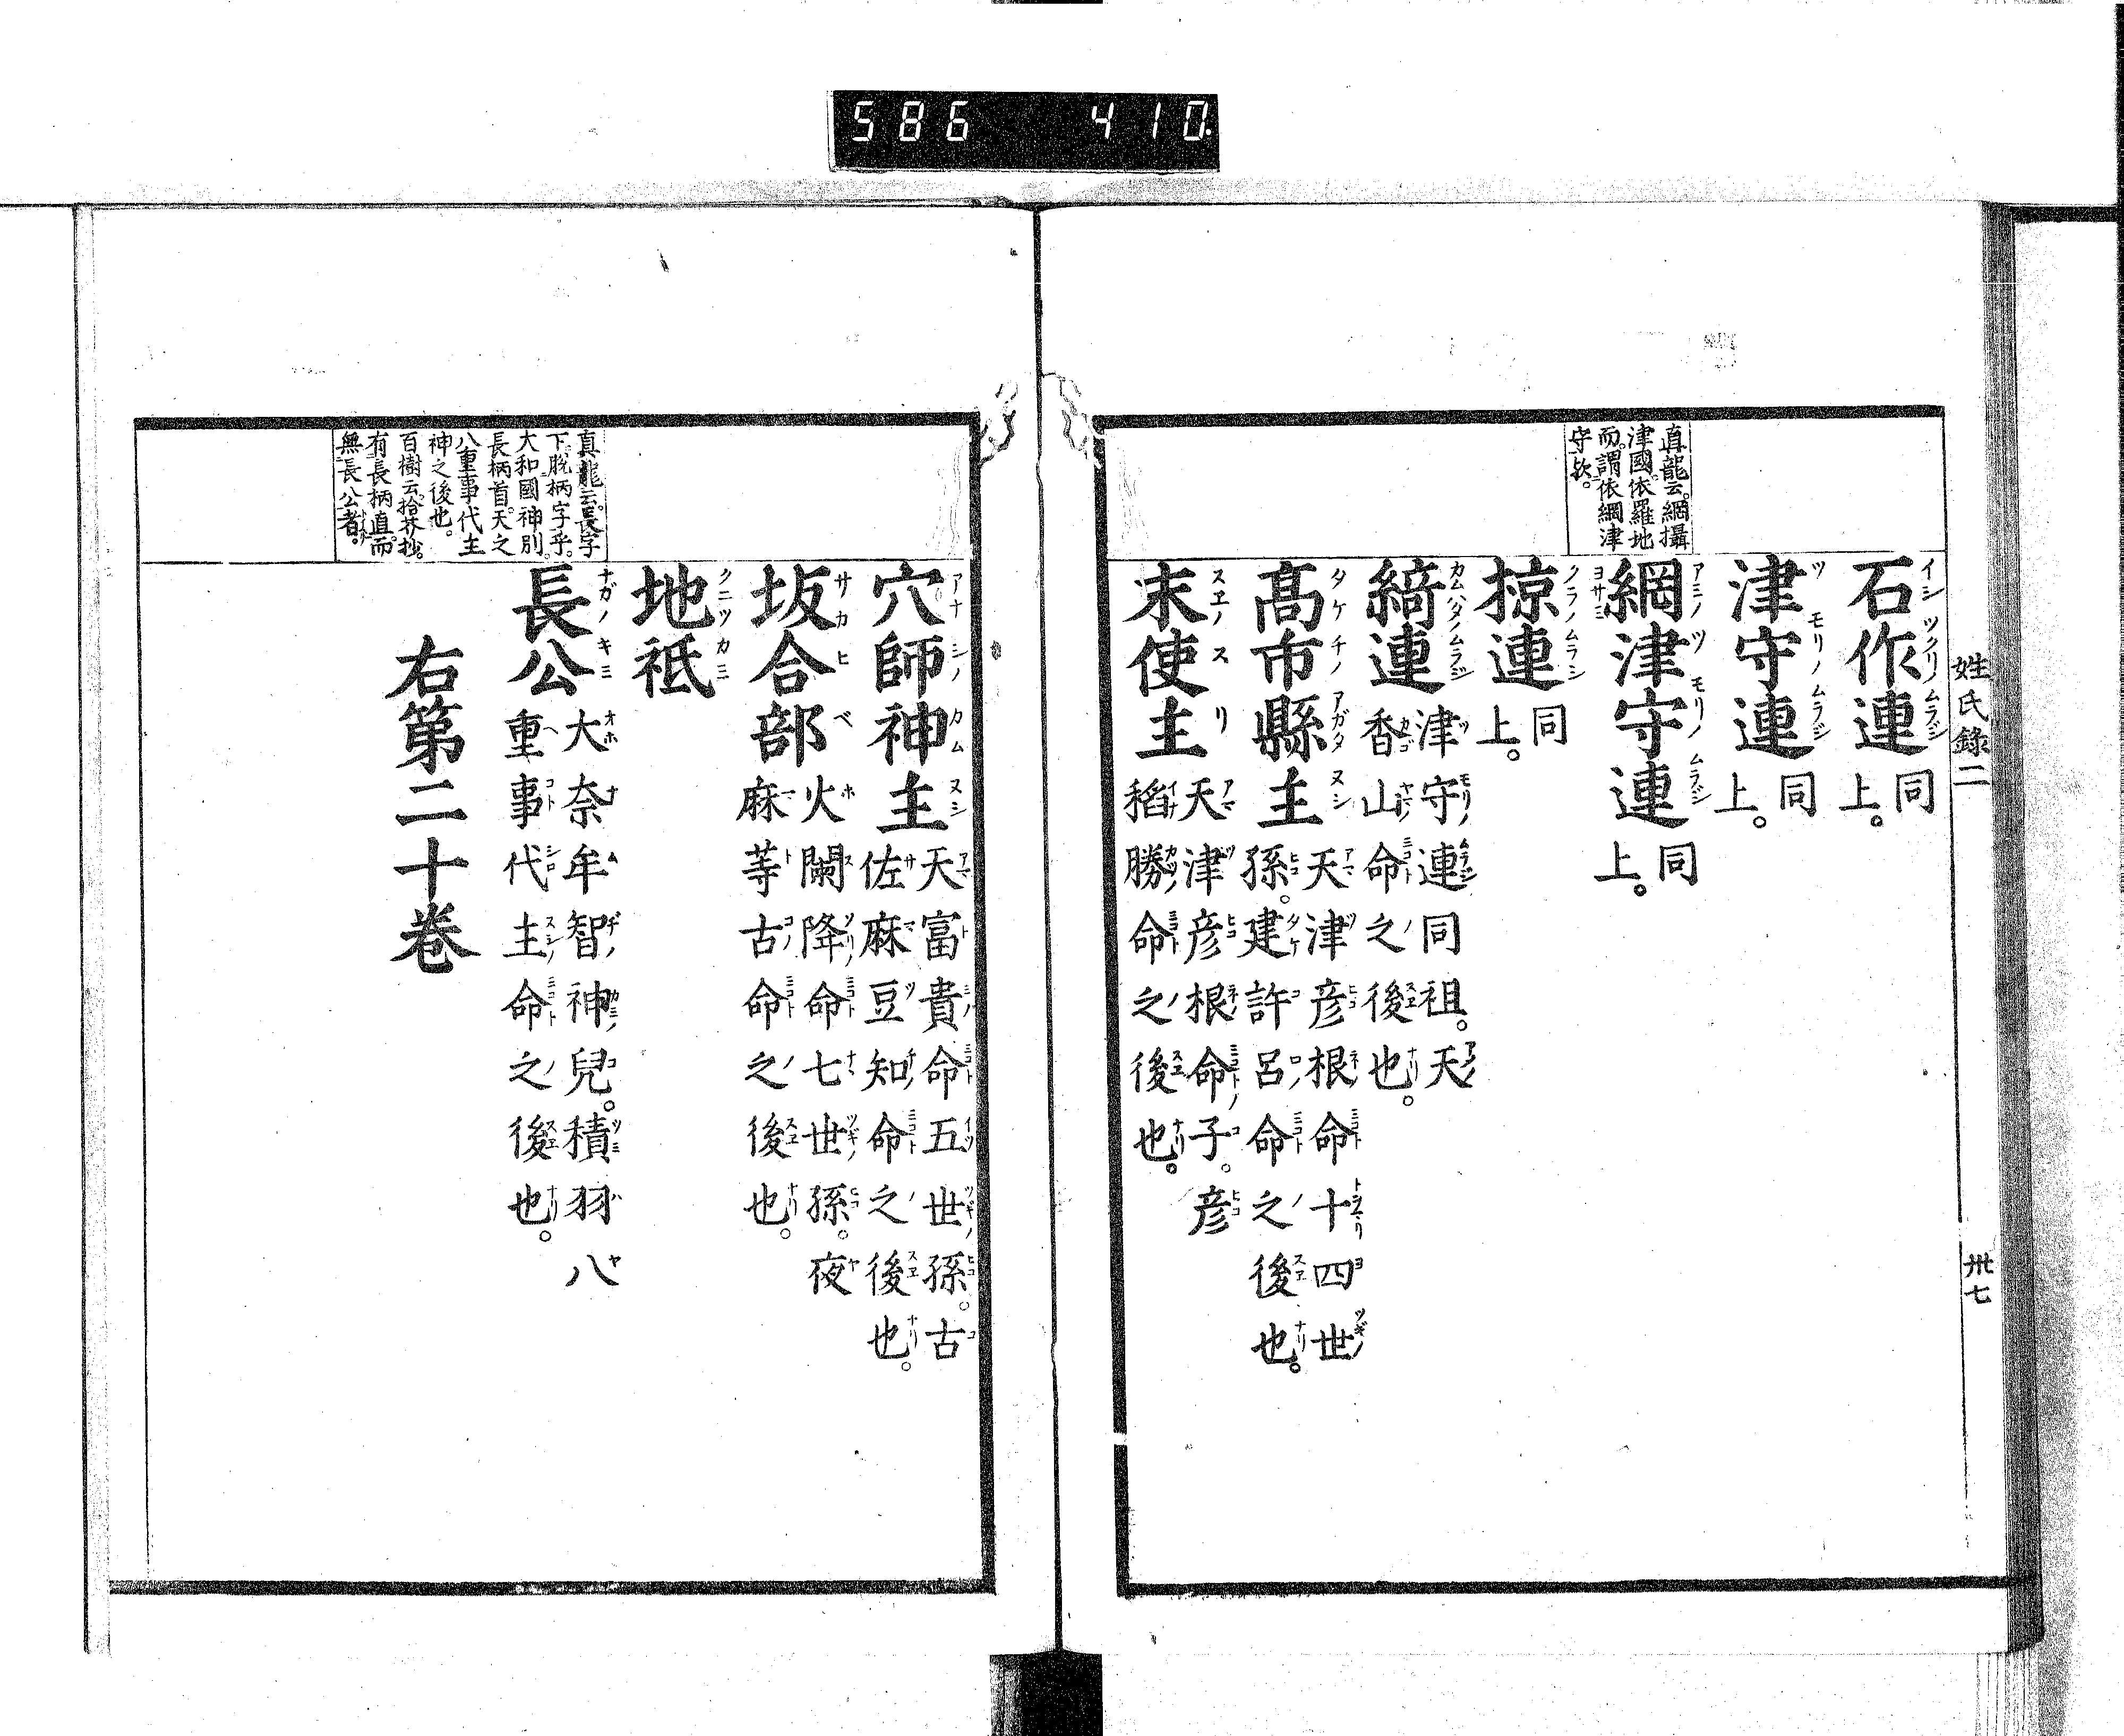 586 410.
姓氏錄二
卅七
真龍云。網攝
津國依羅地
而。謂依網津
守歟。
石作連 同上。
津守連 同上。
網津守連 同上。
掠連 同上。
綺連 津守連同祖。天
香山命之後也。
髙市縣主 天津彦根命十四世
孫。建許呂命之後也。
末使主 天津彦根命子。彦
稻勝命之後也。
真龍云。長字
下。脫柄字乎。
大和國神別。
長柄首。天之
八重事代主
神之後也。
百樹云。拾芥抄。
有長柄直。而
無長公者。
穴師神主 天富貴命五世孫。古
佐麻豆知命之後也。
坂合部 火闌降命七世孫。夜
麻等古命之後也。
地祇
長公 大奈牟智神兒。積羽八
重事代主命之後也。
右第二十卷